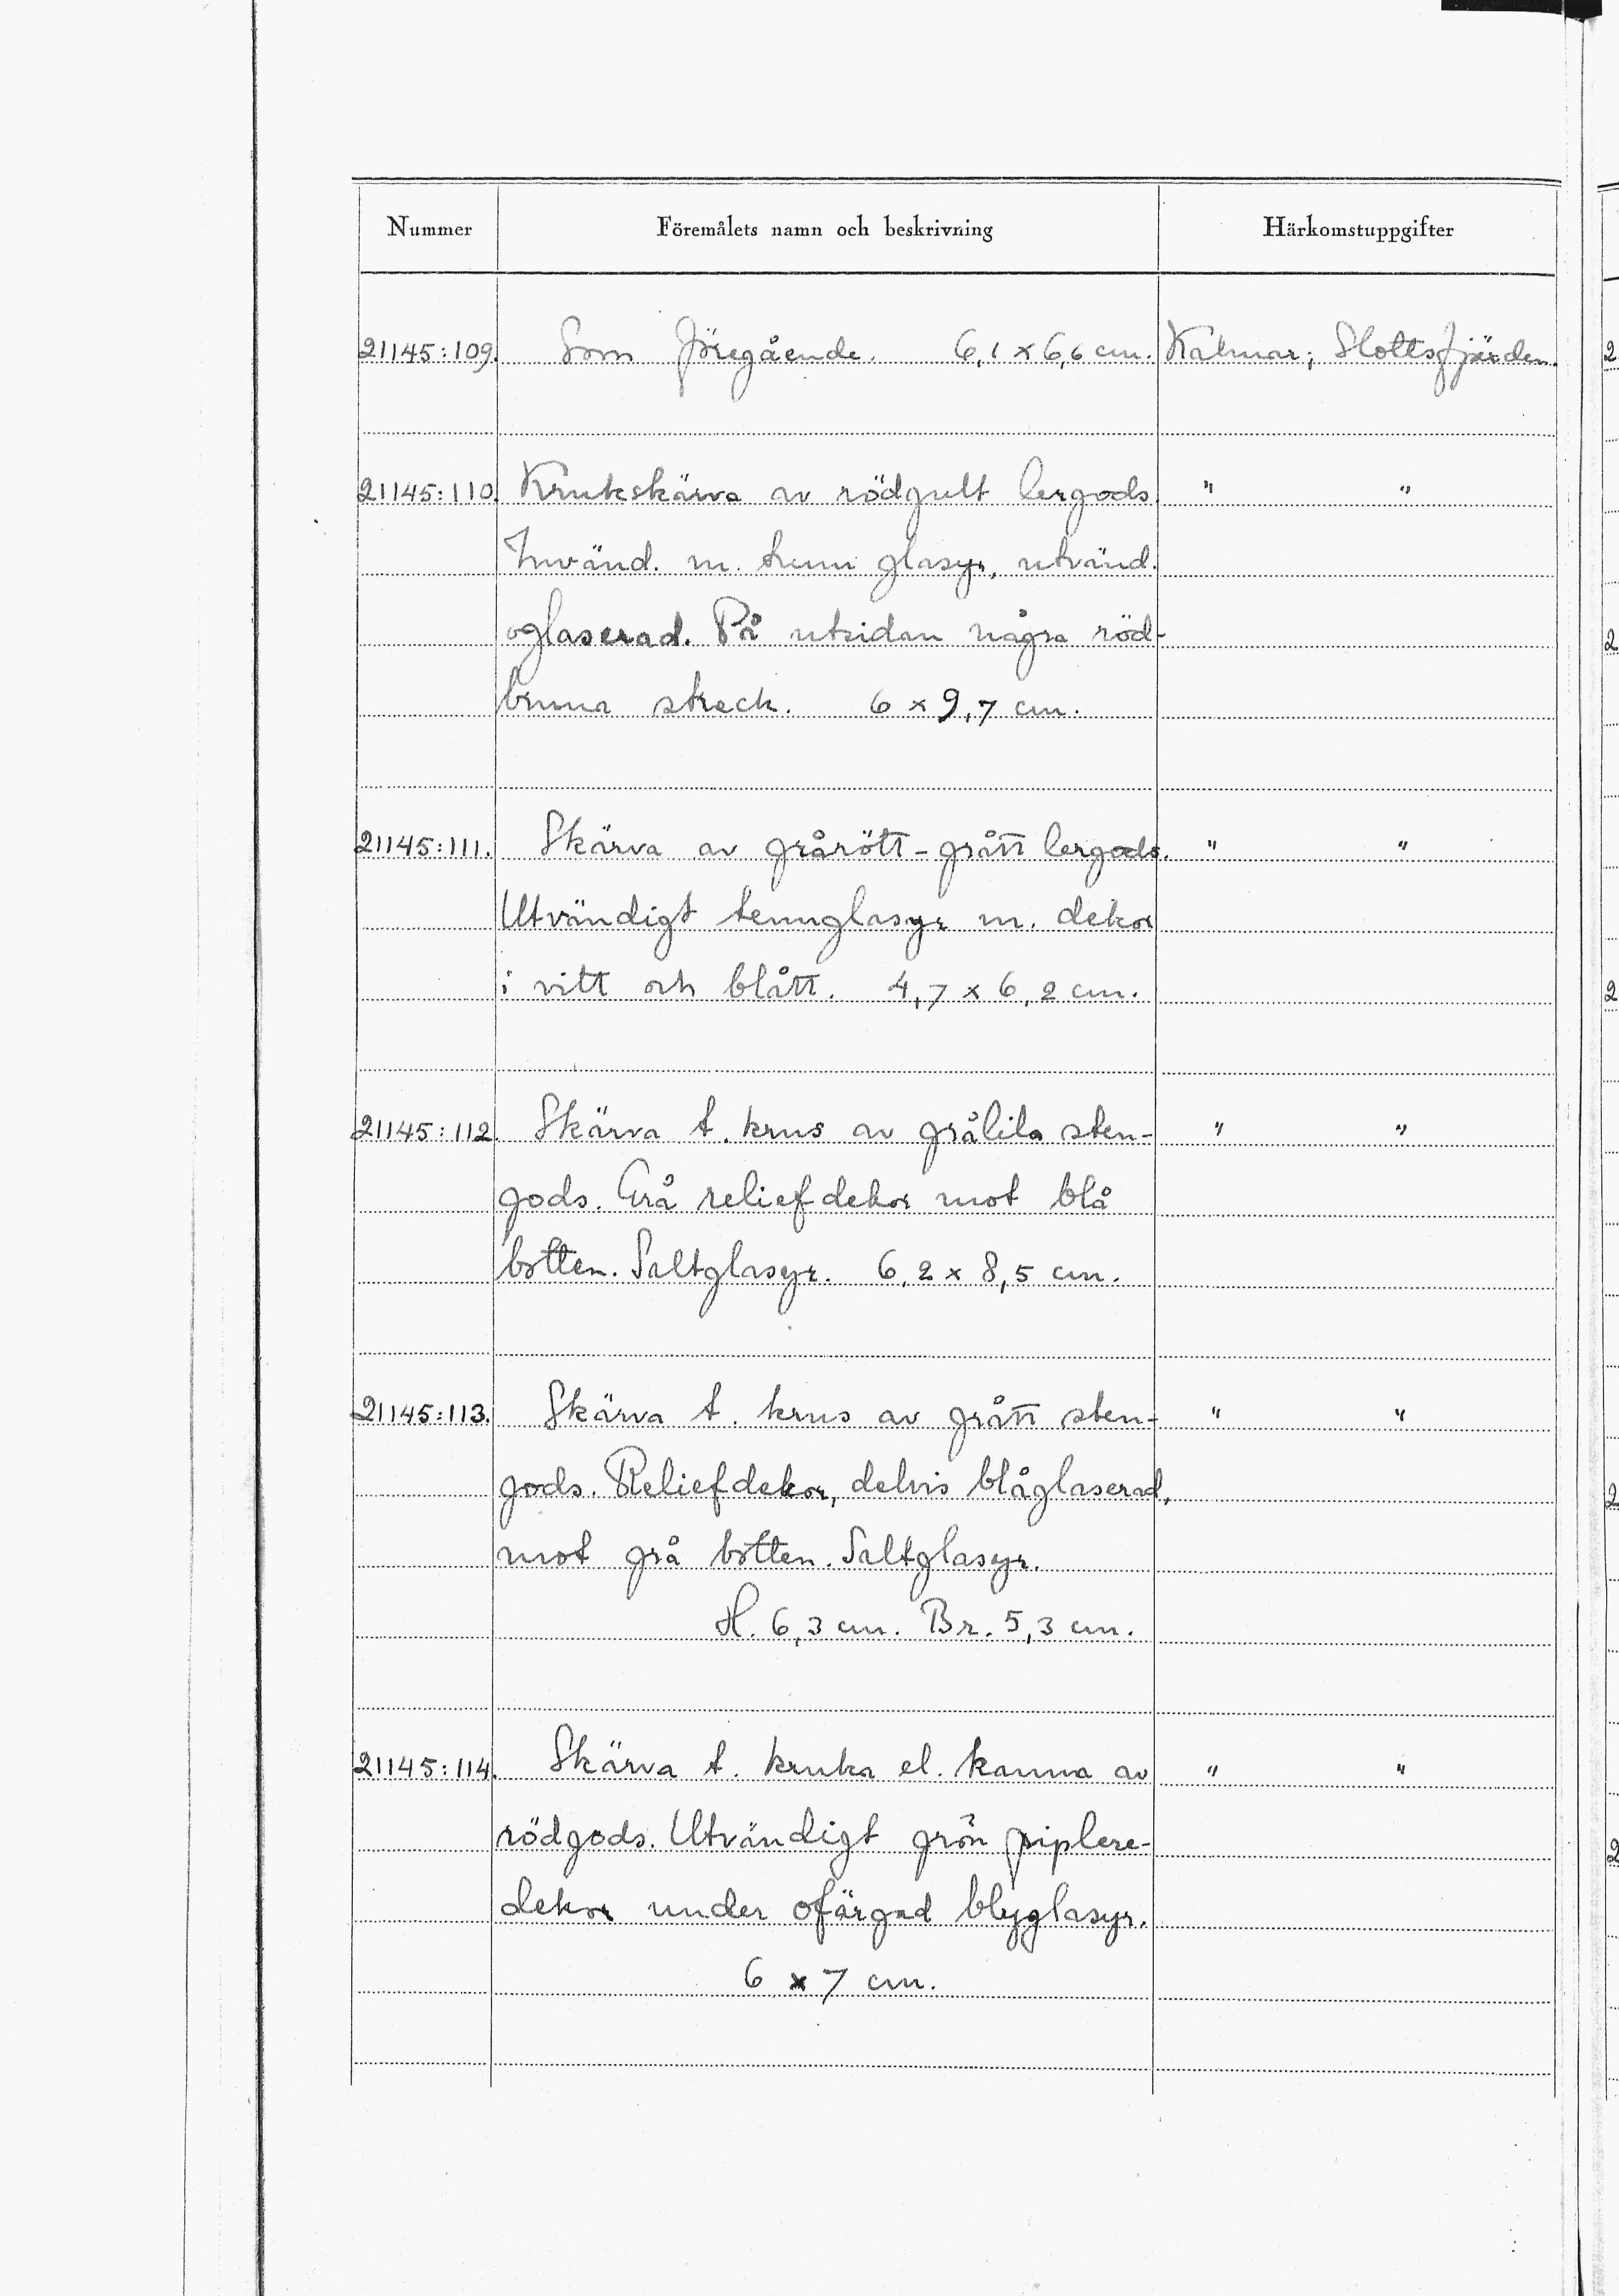 Nummer Föremålets namn och beskrivning Härkomstuppgifter
21145:109. Som föregående. 6,1 x 6,6 cm. Kalmar; Slottsfjärden.
21145:110. Krukskärva av rödgult lergods. " "
Invänd. m. tunn glasyr, utvänd.
oglaserad. På utsidan några röd-
bruna streck. 6 x 9,7 cm.
21145:111. Skärva av grårött-grått lergods. " "
Utvändigt tennglasyr m. dekor
i vitt och blått. 4,7 x 6,2 cm.
21145:112. Skärva t. krus av grålila sten- " "
gods. Grå reliefdekor mot blå
botten. Saltglasyr. 6,2 x 8,5 cm.
21145:113. Skärva t. krus av grått sten- " "
gods. Reliefdekor, delvis blåglaserad,
mot grå botten. Saltglasyr.
H. 6,3 cm. Br. 5,3 cm.
21145:114. Skärva t. kruka el. kanna av " "
rödgods. Utvändigt grön piplere-
dekor under ofärgad blyglasyr.
6 x 7 cm.